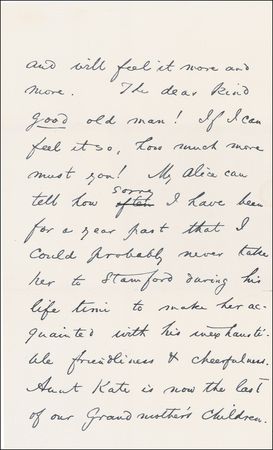 and will feel it more and
more. The dear kind
good old man! If I can
feel it so, how much more
must you! My Alice can
tell how sorry I have been
for a year past that I
could probably never take
her to Stamford during his
life time to make her ac-
quainted with his inexhausti-
ble friendliness & cheerfulness.
Aunt Kate is now the last
of our Grandmother's children.